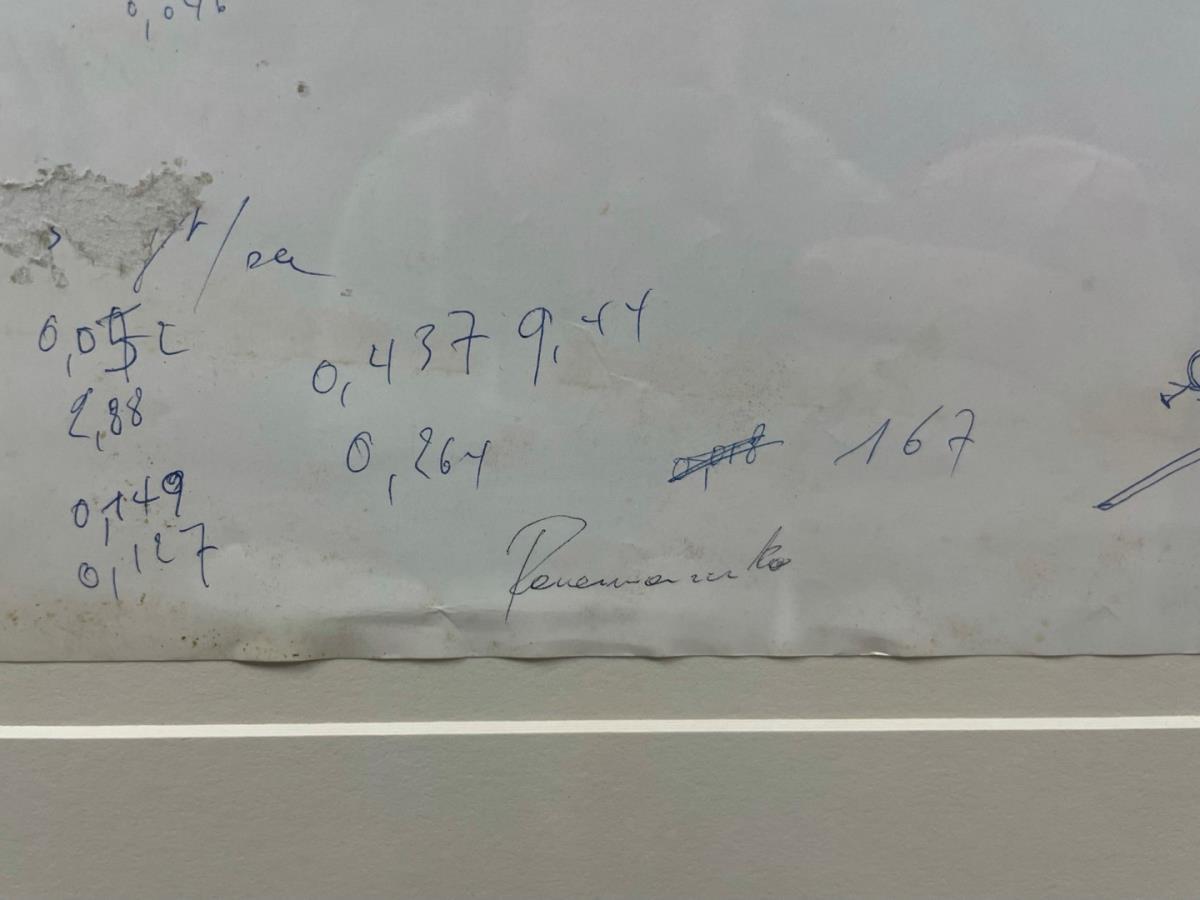 0,046
т/га
0,052
2,88
0,437 9,44
0,264
167
0,149
0,127